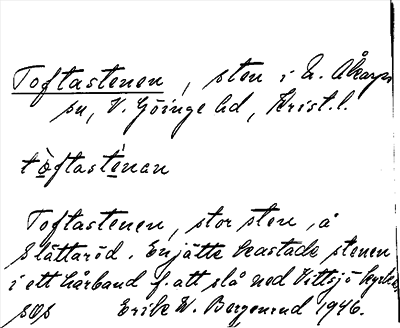 Toftastenen, sten i N. Åkarps
sn, V. Göinge hd, Krist. l.
tòftasténan
Toftastenen, stor sten, å
Slättaröd. En jätte kastade stenen
i ett hårband f. att slå ned Vittsjö kyrka,
sos Erik W. Bergenrud 1946.